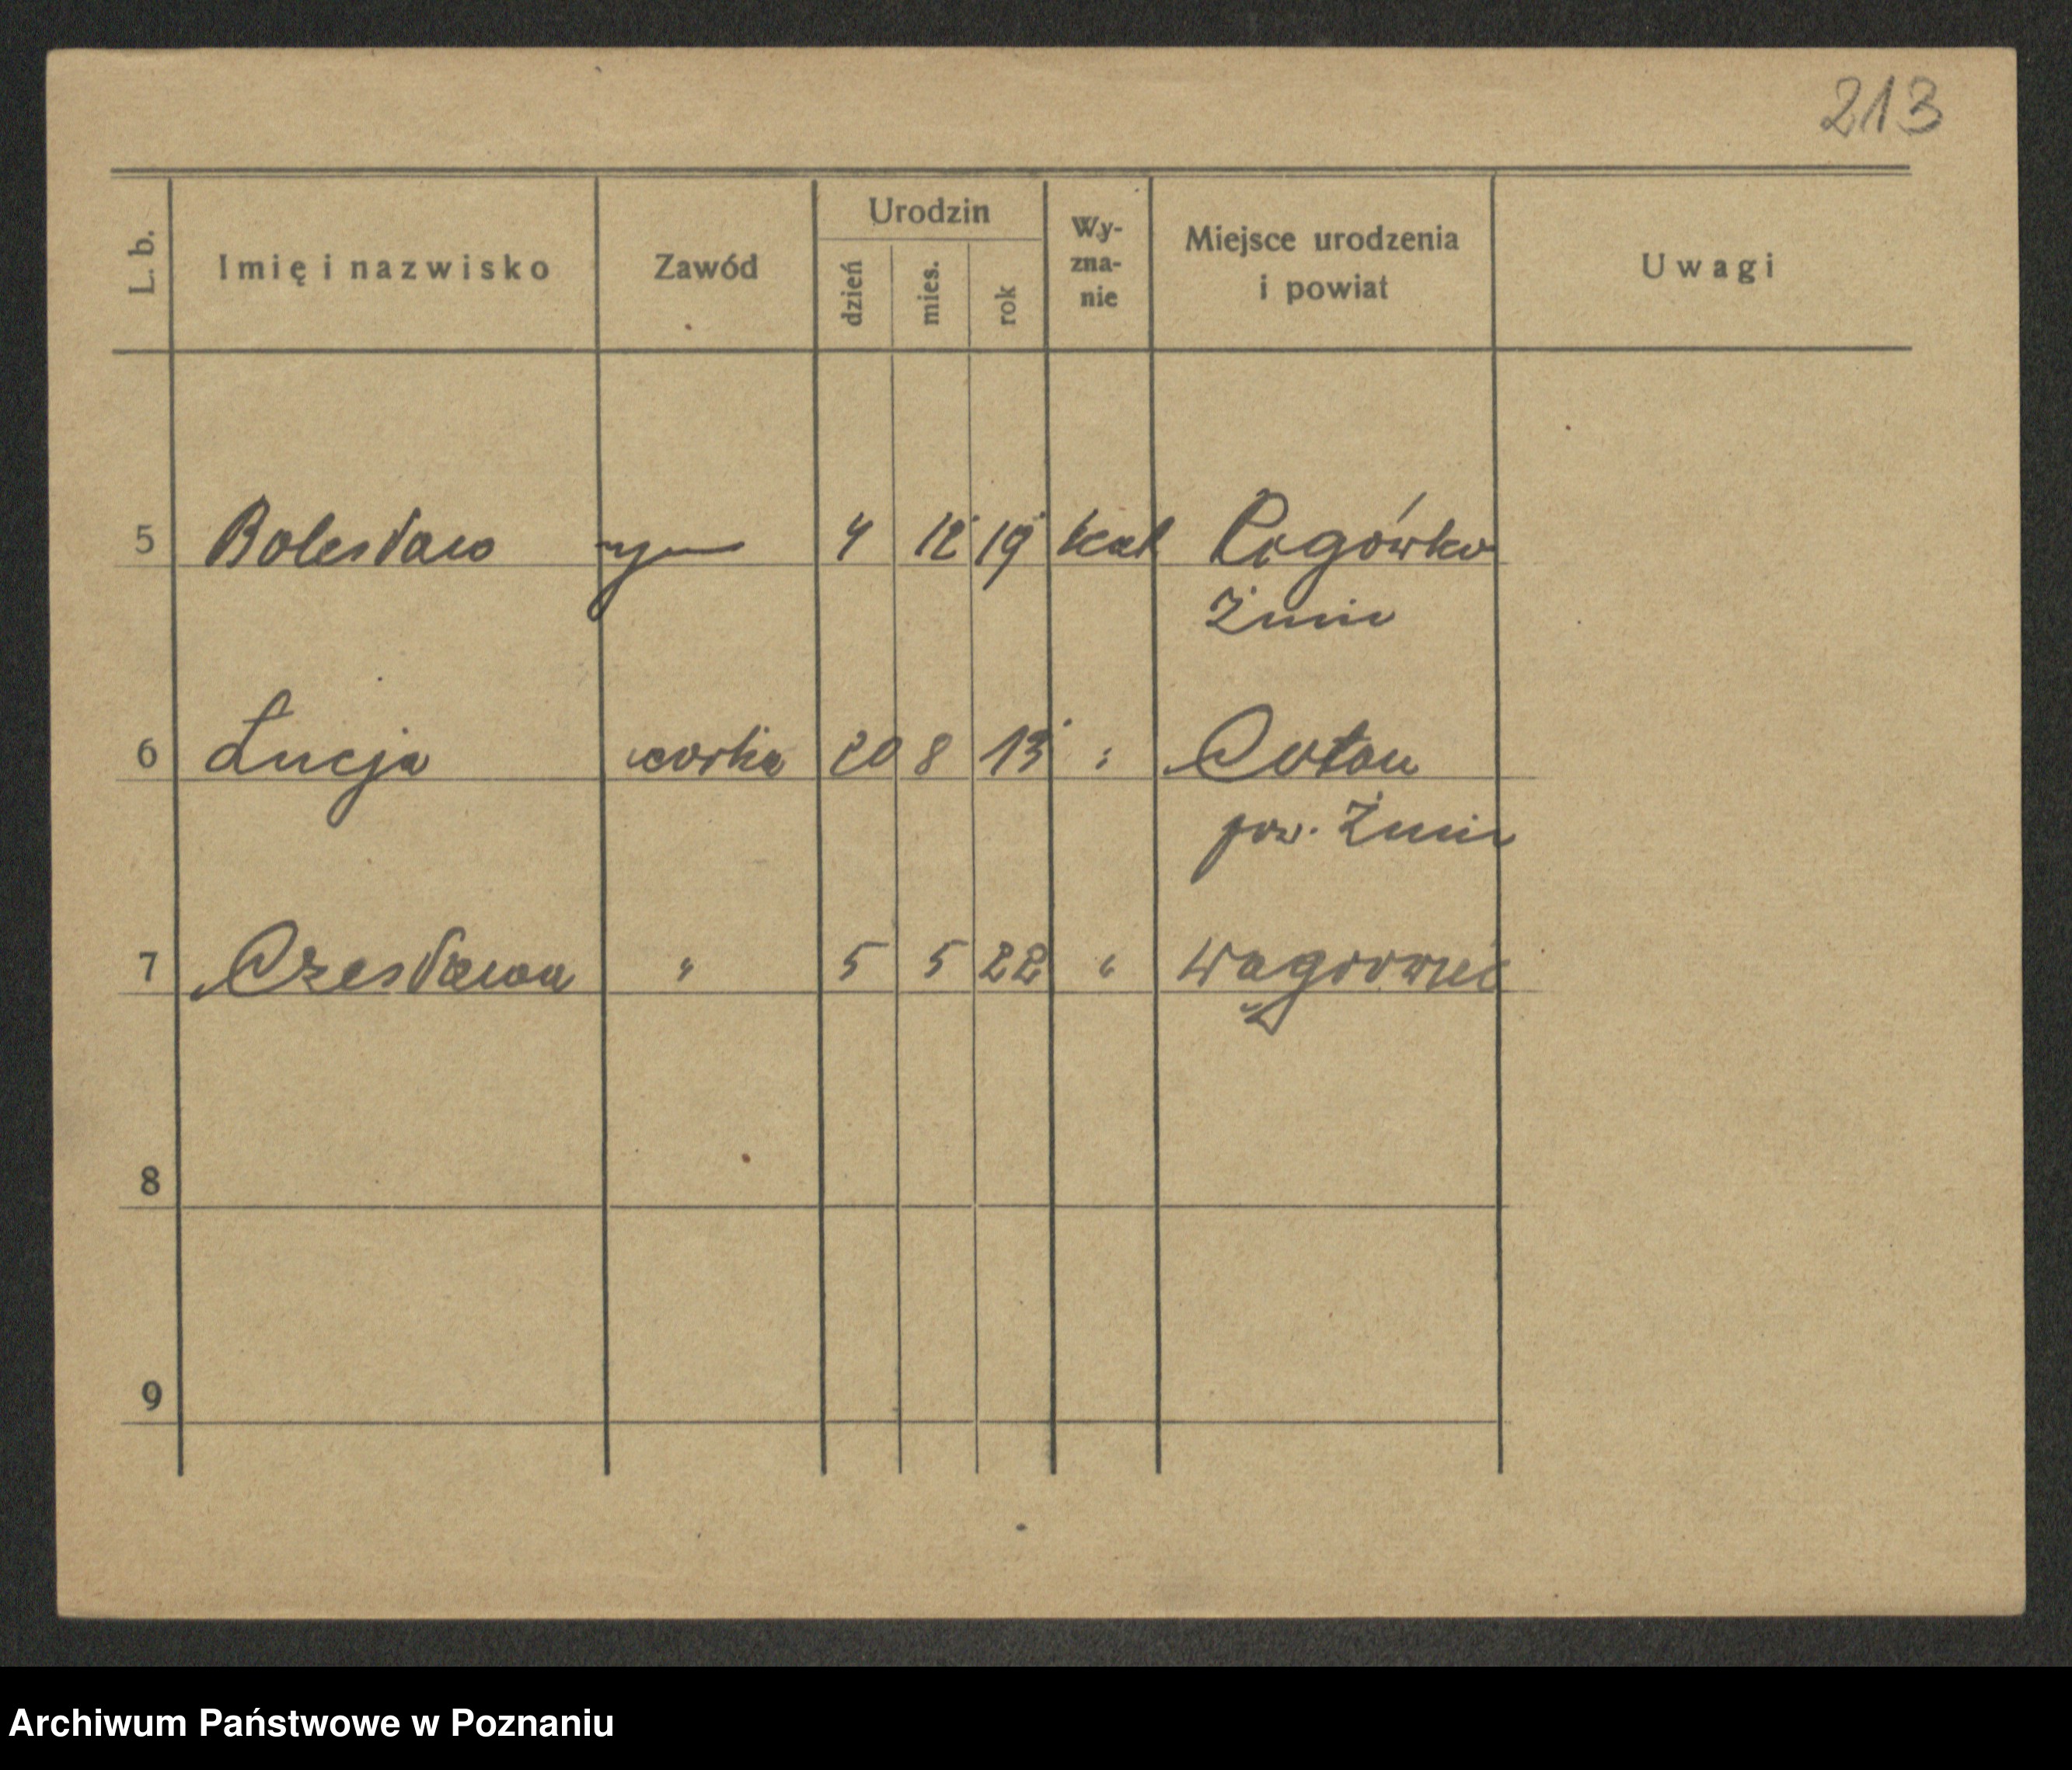 213
L. b. Imię i nazwisko Zawód Urodzin dzień mies. rok Wy-zna-nie Miejsce urodzenia i powiat Uwagi
5 Bolesław syn 4 12 19 kat Rogówko
Żnin
6 Łucja corka 20 8 13 " Cotoń
pow. Żnin
7 Czesława " 5 5 22 " Wągrowiec
8
9
Archiwum Państwowe w Poznaniu